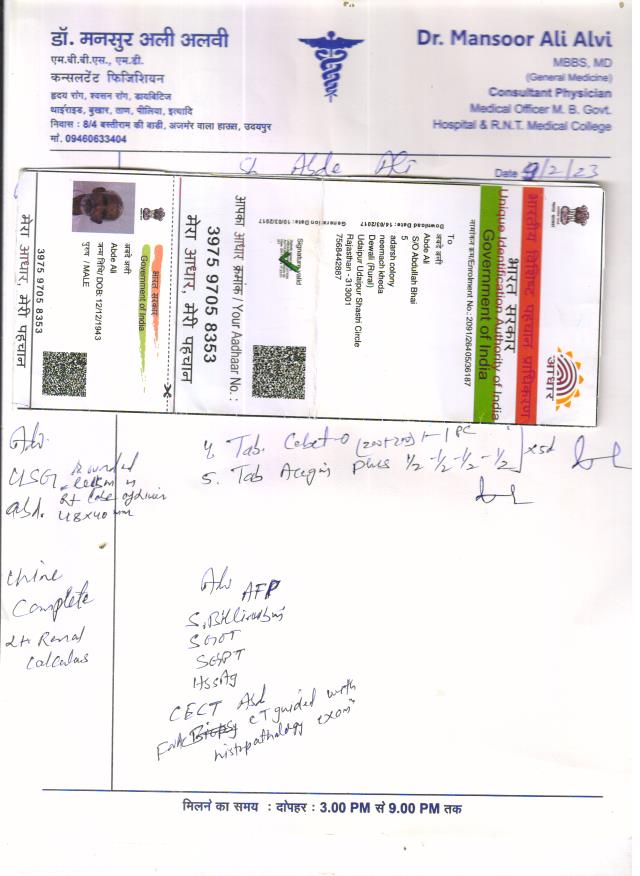 डॉ. मनसुर अली अलवी
एम.बी.बी.एस., एम.डी.
कन्सलटेंट फिजिशियन
हृदय रोग, श्वसन रोग, डायबिटिज
थाईराइड, बुखार, ताण, पीलिया, इत्यादि
निवास : 8/4 बस्तीराम की बाडी, अजमेर वाला हाउस, उदयपुर
मो. 09460633404
Dr. Mansoor Ali Alvi
MBBS, MD
(General Medicine)
Consultant Physician
Medical Officer M. B. Govt.
Hospital & R.N.T. Medical College
Abde Ali
Date 9/2/23
भारत सरकार
Government of India
अबदे अली
Abde Ali
जन्म तिथि / DOB: 12/12/1943
पुरुष / MALE
3975 9705 8353
मेरा आधार, मेरी पहचान
आपका आधार क्रमांक / Your Aadhaar No. :
3975 9705 8353
मेरा आधार, मेरी पहचान
भारतीय विशिष्ट पहचान प्राधिकरण
भारत सरकार
Unique Identification Authority of India
Government of India
नामांकन क्रम/Enrolment No.: 2091/26405/36187
To
अबदे अली
Abde Ali
S/O Abdullah Bhai
5
adarsh colony
neemach kheda
Dewali (Rural)
Udaipur Udaipur Shastri Circle
Rajasthan - 313001
7568442887
Download Date: 14/03/2017
Generation Date: 10/03/2017
Signature valid
आधार
Adv.
USG
Abd.
Rt lobe of liver
48x40 mm
4. Tab. Cebet-O (200+200) 1-1 PC
5. Tab plus 1/2-1/2-1/2-1/2 x5d
Urine
Complete
Renal
Calculus
Adv AFP
S. Billirubin
SGOT
SGPT
HBsAg
CECT Abd
CT guided with
histopathology exam
मिलने का समय : दोपहर : 3.00 PM से 9.00 PM तक